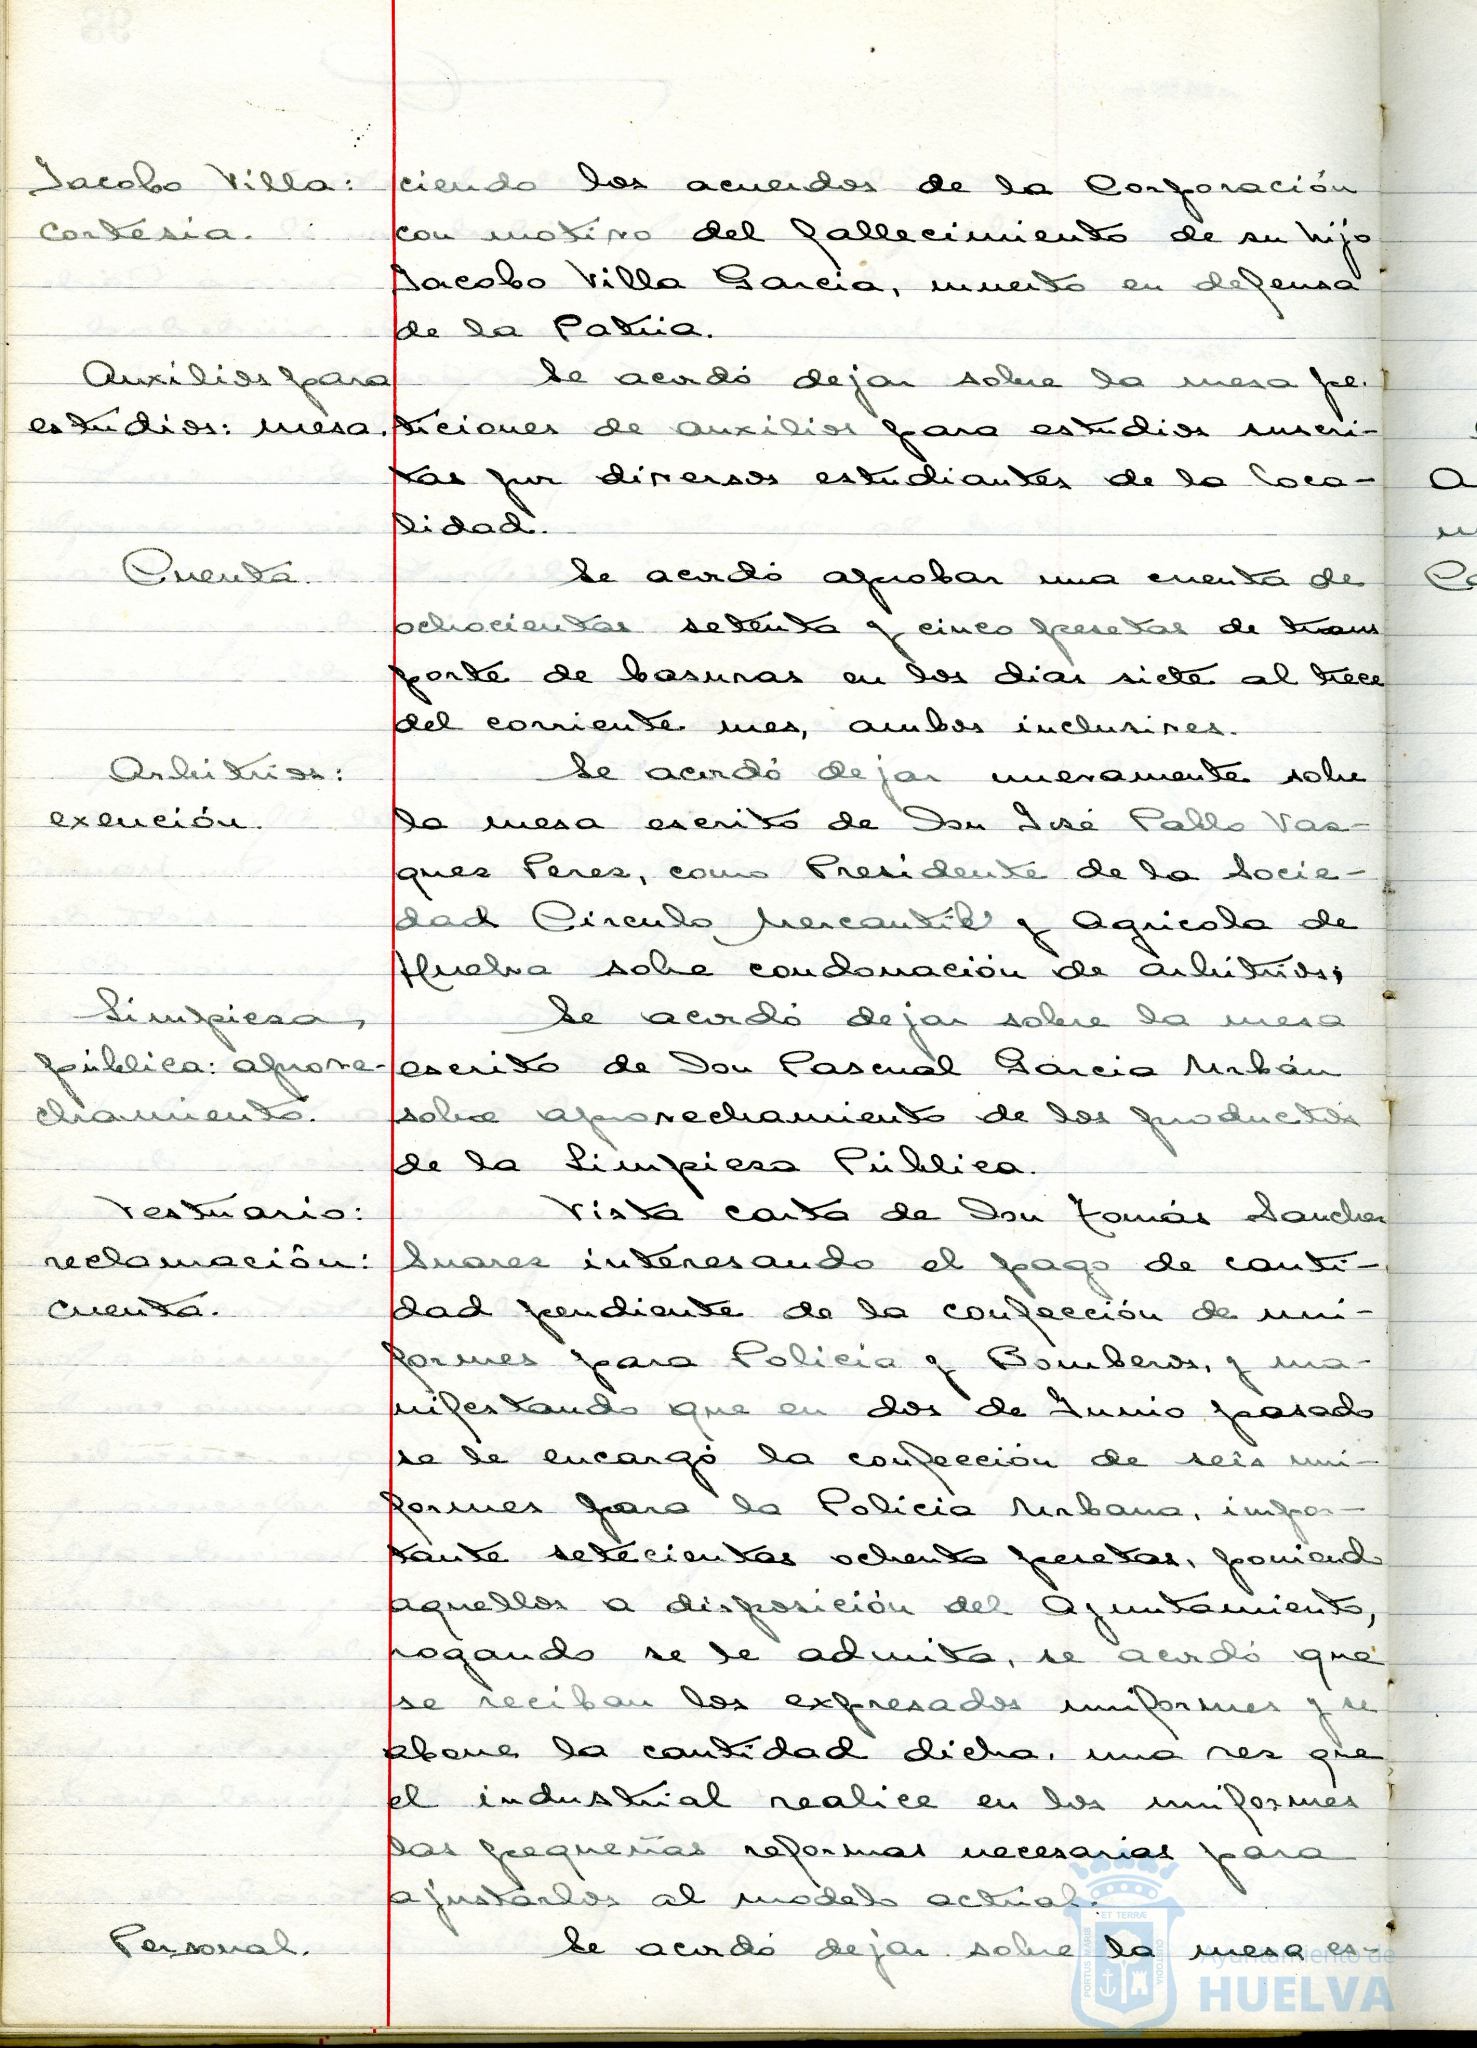 Jacobo Villa:
cortesia.
ciendo los acuerdos de la Corporación
con motivo del fallecimiento de su hijo
Jacobo Villa Garcia, muerto en defensa
de la Patria.
Auxilios para
estudios: mesa.
Se acordó dejar sobre la mesa pe-
ticiones de auxilios para estudios suscri-
tas por diversos estudiantes de la loca-
lidad.
Cuenta.
Se acordó aprobar una cuenta de
ochocientas setenta y cinco pesetas de trans
porte de basuras en los dias siete al trece
del corriente mes, ambos inclusives.
Arbitrios:
exención.
Se acordó dejar nuevamente sobre
la mesa escrito de Don José Pablo Vaz-
quez Perez, como Presidente de la Socie-
dad Circulo Mercantil y Agricola de
Huelva sobre condonación de arbitrios;
Limpieza
pública: aprove-
chamiento.
Se acordó dejar sobre la mesa
escrito de Don Pascual Garcia Urbán
sobre aprovechamiento de los productos
de la Limpieza Pública.
Vestuario:
reclamación:
cuenta.
Vista carta de Don Tomás Sanchez
Suarez interesando el pago de canti-
dad pendiente de la confección de uni-
formes para Policia y Bomberos, y ma-
nifestando que en dos de Junio pasado
se le encargó la confección de seis uni-
formes para la Policia Urbana, impor-
tante setecientas ochenta pesetas, poniendo
aquellos a disposición del Ayuntamiento,
rogando se le admita, se acordó que
se reciban los expresados uniformes y se
abone la cantidad dicha, una vez que
el industrial realice en los uniformes
las pequeñas reformas necesarias para
ajustarlos al modelo actual.
Personal.
Se acordó dejar sobre la mesa es-
Ayuntamiento de
HUELVA
PORTUS MARIS
ET TERRÆ
CUSTODIA